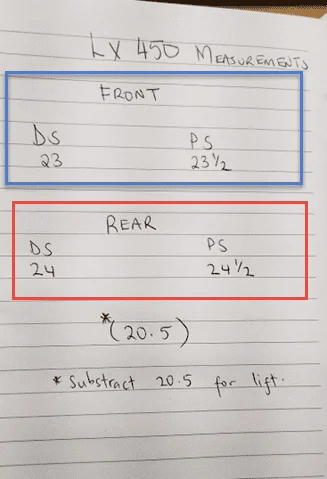 LX 450 MEASUREMENTS
FRONT
DS PS
23 23 1/2
REAR
DS PS
24 24 1/2
*(20.5)
* Substract 20.5 for lift.